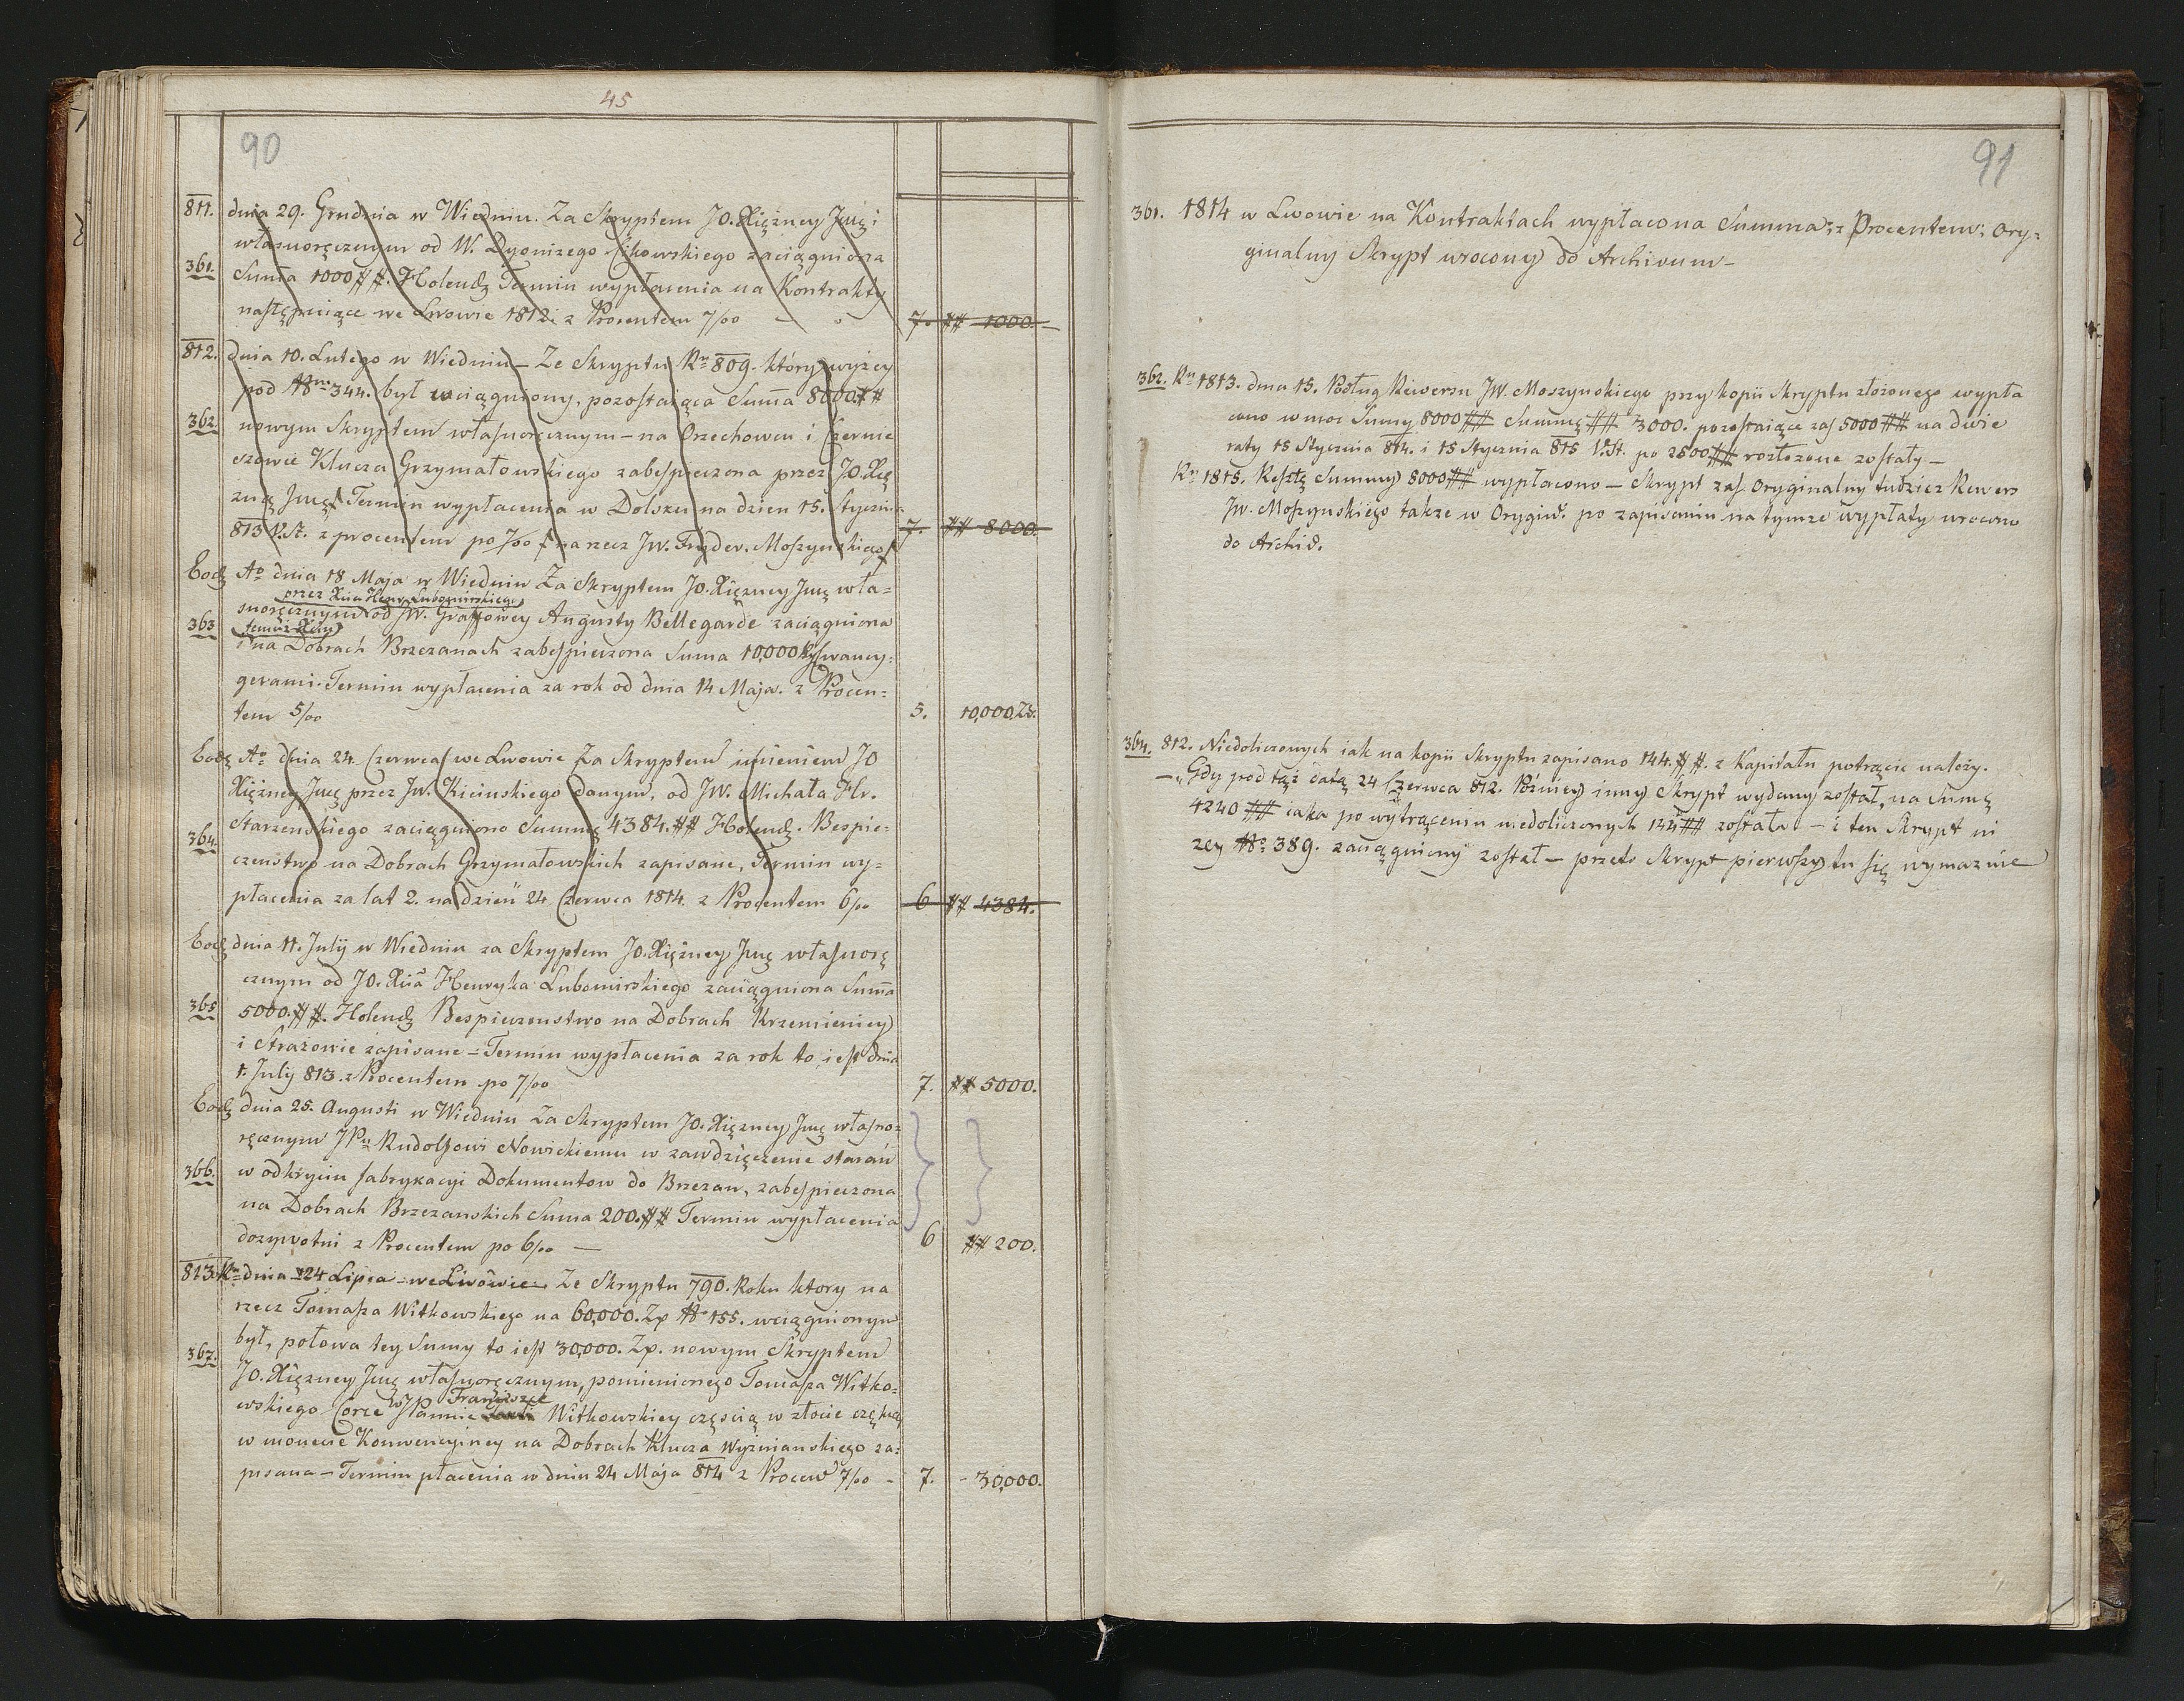 45
90
811. dnia 29. Grudnia w Wiedniu. Za Skryptem JO. Xiężney Jmę i
własnoręcznym od W. Dyonizego zaciągniona
361. Suma 1000 ##. Holend Termin wypłacenia na Kontrakty
następuiące we Lwowie 1812. z Procentem 7/00 – 7. ## 1000.
812. dnia 10. Lutego w Wiedniu – Ze Skryptu Ru 809. który wyżey
pod No 344. był wciągniony, pozostaiąca Suma 8000 ##
362. nowym Skryptem własnoręcznym – na Orzechowcu i Czernie
szowie Klucza Grzymałowskiego zabespieczona przez JO. Xię
żnę Jmę Termin wypłacenia w Dolsku na dzien 15. Stycznia
813 V.S. z procentem po 7/00 na rzecz Jw. Fryder. Moszynskiego 7. ## 8000.
Eod Ao dnia 18 Maja w Wiedniu Za Skryptem JO. Xiężney Jmę wła=
przez Xia Henr. Lubomirskiego
snoręcznym od JW. Graffowey Augusty Bellegarde zaciągniona
363
i na Dobrach Brzezanach zabespieczona Suma 10,000 Zwancy=
gerami. Termin wypłacenia za rok od dnia 14 Maja. z Procen=
tem 5/00 5. 10,000 Zr.
Eod Ao dnia 24. Czerwca we Lwowie Za Skryptem imieniem JO
Xiężney Jmę przez Jw. Kicinskiego danym, od JW. Michała Hr.
364. Starzenskiego zaciągniono Summę 4384. ## Holend. Bespie=
czenstwo na Dobrach Grzymałowskich zapisane, Termin wy=
płacenia za lat 2. na dzień 24 Czerwca 1814. z Procentem 6/00 6 ## 4384.
Eod dnia 11. Julij w Wiedniu za Skryptem JO. Xiężney Jmę własnorę
cznym od JO. Xiia Henryka Lubomirskiego zaciągniona Suma
365 5000. ##. Holend Bespieczenstwo na Dobrach Krzemienicy
i Strażowie zapisane = Termin wypłacenia za rok to iest dnia
1. July 813. z Procentem po 7/00 7. ## 5000.
Eod dnia 25. Augusti w Wiedniu Za Skryptem JO. Xiężney Jmę własno=
ręcznym JPu Rudolfowi Nowickiemu w zawdzięczenie starań
366. w odkryciu fabrykacyi Dokumentow do Brzezan, zabespieczona
na Dobrach Brzezanskich Suma 200. ## Termin wypłacenia
dozywotni z Procentem po 6/00 — 6 ## 200.
813. Ru dnia 24 Lipca – we Lwowie – Ze Skryptu 790. Roku ktory na
rzecz Tomasza Witkowskiego na 60,000. Zp No 155. wciągnionym
367. był, połowa tey Sumy to iest 30,000. Zp. nowym Skryptem
JO. Xiężney Jmę własnoręcznym, pomienionego Tomasza Witko=
Franciszce
wskiego Corce W JPannie Witkowskiey częscią w złocie częscią
w monecie Konwencyiney na Dobrach Klucza Wyżnianskiego za=
pisana – Termin płacenia w dniu 24 Maja 814 z Procen 7/00 – 7. – 30,000.
91
361. 1814 w Lwowie na Kontraktach wypłacona Summa z Procentem; ory=
ginalny Skrypt wrocony do Archivum –
362. Ru 1813. dnia 15. Podług Rewersu JW. Moszynskiego przy kopii Skryptu złożonego wypła
cono w moc Sumy 8000 ## Summę ## 3000. pozostaiące zas 5000 ## na dwie
raty 15 Stycznia 814. i 15 Stycznia 815 V.St. po 2500 ## rozłożone zostały –
Ru 1815. Resztę Summy 5000 ## wypłacono – Skrypt zas Oryginalny tudziez Rewers
Jw. Moszynskiego także w Orygin. po zapisaniu na tymze wypłaty wrocono
do Archiv.
364. 812. Niedoliczonych iak na kopii Skryptu zapisano 144. ##. z Kapitału potrącić należy.
– „Gdy pod tąż datą 24 Czerwca 812. Pózniey inny Skrypt wydany został, na Sumę
4240 ## iaka po wytrąceniu niedoliczonych 144 ## została – i ten Skrypt ni
żey No 389. zaciągniony został – przeto Skrypt pierwszy tu się wymazuie